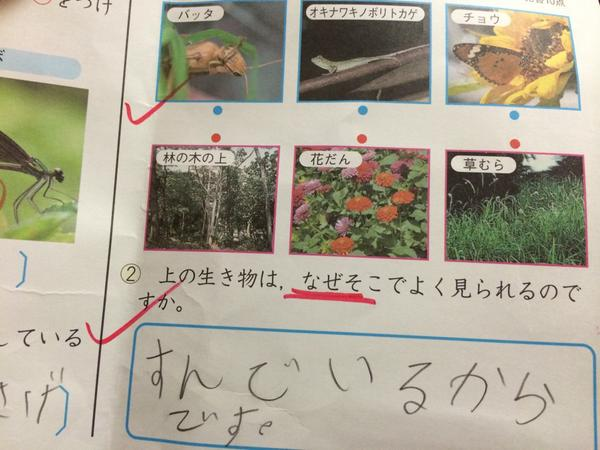 をつけ
バッタ
オキナワキノボリトカゲ
チョウ
林の木の上
花だん
草むら
② 上の生き物は，なぜそこでよく見られるので
すか。
している
すんでいるから
です。